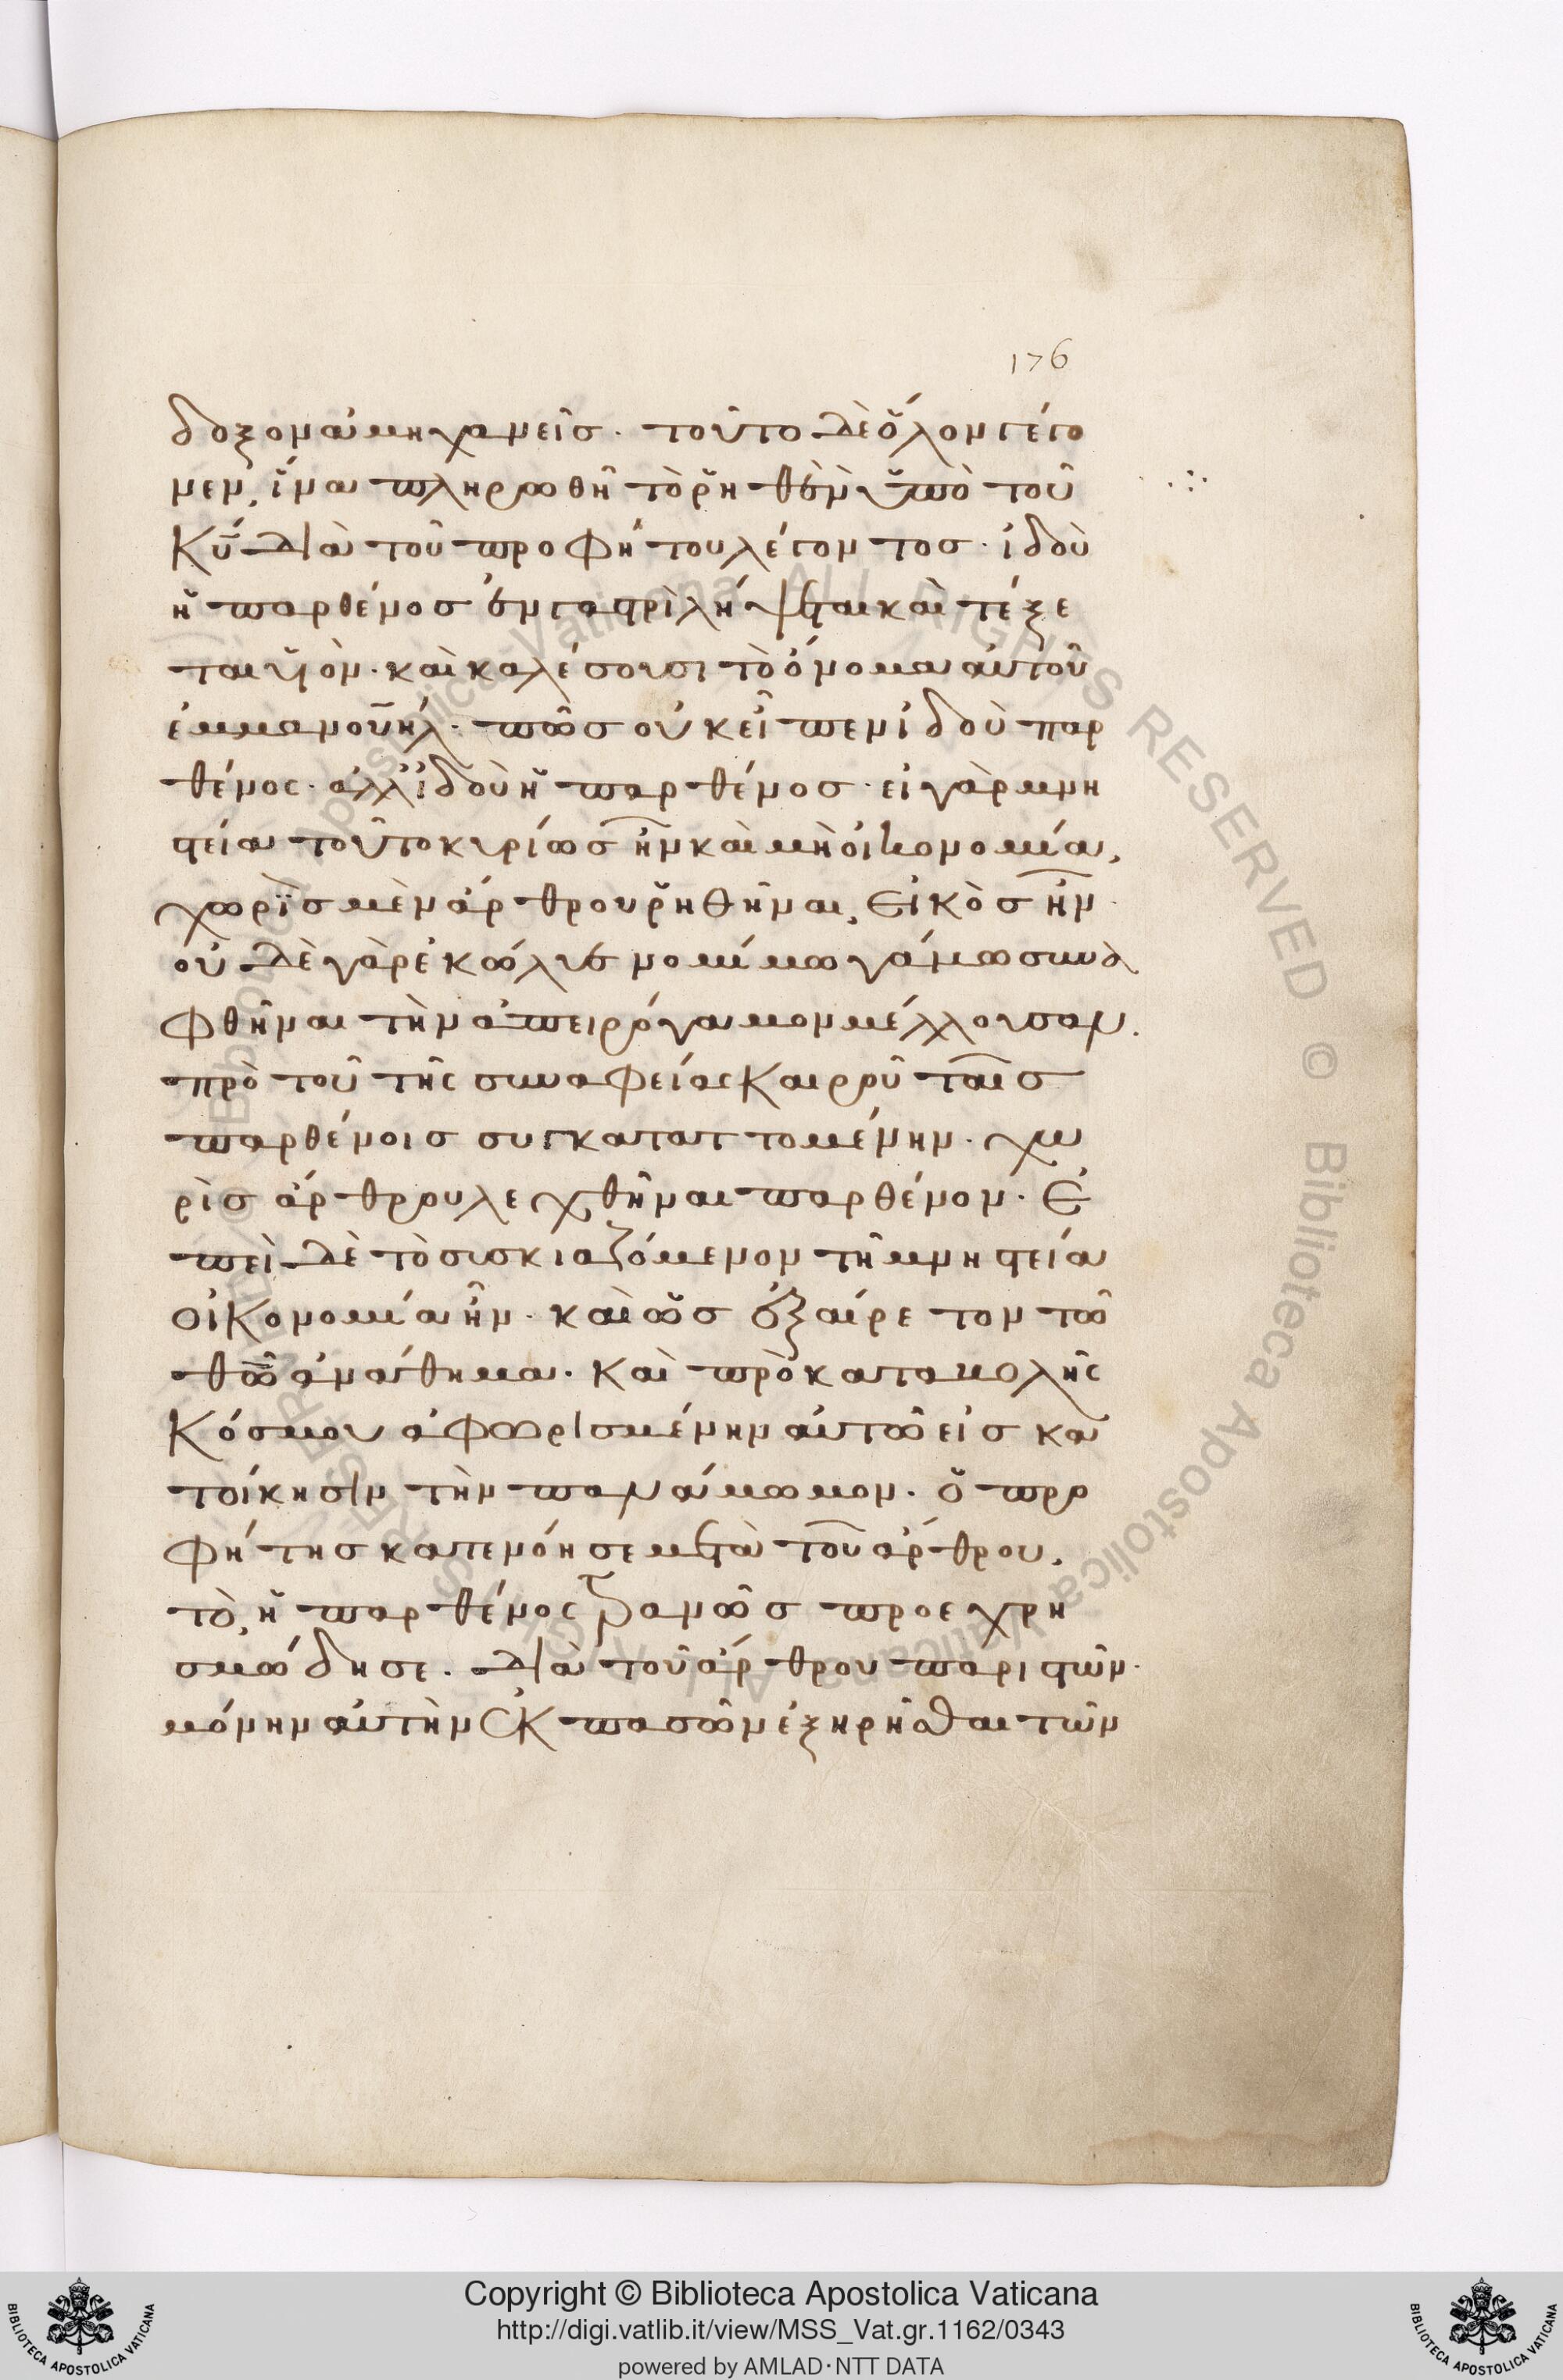 176
δοξον ἀμηχανεῖς· τοῦτο δὲ ὅλον γέγο
νεν, ἵνα πληρωθῆ τὸ ῥηθὲν ὑπὸ τοῦ
κ̅υ̅ διὰ τοῦ προφήτου λέγοντος· ἰδοὺ
ἡ παρθένος ἐν γαστρὶ λήψεται καὶ τέξε
ται υἱόν· καὶ καλέσουσι τὸ ὄνομα αὐτοῦ
ἐμμανουήλ· πῶς οὐκ εἶπεν ἰδοὺ παρ
θένος· ἀλλ' ἰδοὺ ἡ παρθένος· εἰ γὰρ μνη
στεία τοῦτο κυρίως ἦν καὶ μὴ οἰκονομία,
χωρὶς μὲν ἄρθρου ῥηθῆναι, εἰκὸς ἦν·
οὐδὲ γὰρ ἐκώλυε νομίμω γάμω συνα
φθῆναι τὴν ἀπειρόγαμον μέλλουσαν.
πρὸ τοῦ τῆς συναφείας καιροῦ ταῖς
παρθένοις συγκαταττομένην· χω
ρὶς ἄρθρου λεχθῆναι παρθένον· ἐ
πεὶ δὲ τὸ συσκιαζόμενον τῆ μνηστεία
οἰκονομία ἦν· καὶ ὡς ἐξαίρετον τῶ
θ̅ω̅ ἀνάθημα· καὶ πρὸ καταβολῆς
κόσμου ἀφωρισμένην αὐτῶ εἰς κα
τοίκησιν τὴν πανάμωμον· ὁ προ
φήτης κατενόησε μετὰ τοῦ ἄρθρου,
τὸ, ἡ παρθένος τρανῶς προεχρη
σμώδησε· διὰ τοῦ ἄρθρου παριστῶν·
μόνην αὐτὴν ἐκ πασῶν ἐξηρῆσθαι τῶν
© Biblioteca Apostolica Vaticana ALL RIGHTS RESERVED © Biblioteca Apostolica Vaticana ALL RIGHTS RESERVED
BIBLIOTECA APOSTOLICA VATICANA
Copyright © Biblioteca Apostolica Vaticana
http://digi.vatlib.it/view/MSS_Vat.gr.1162/0343
powered by AMLAD·NTT DATA
BIBLIOTECA APOSTOLICA VATICANA